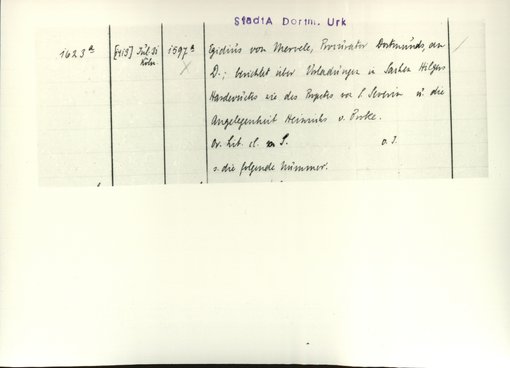 StadtA Dortm. Urk
1623 a [1413] Jul. 31 1597 a Egidius von Mervele, Procurator Dortmunds, an
Köln D.; berichtet über Vorladungen in Sachen Hilgers
Hardevusts wie des Propstes von S. Severin u. die
Angelegenheit Heinrichs v.
Or. lit. cl. m. S. o. J.
s. die folgende Nummer.